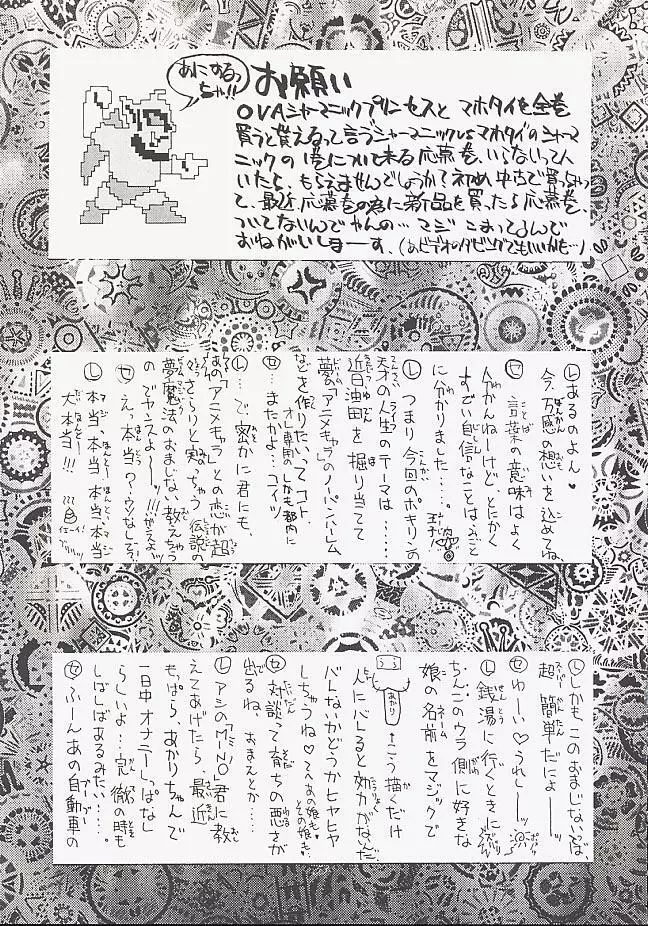 あにするっちゃ!!
お願い
OVAシャーマニックプリンセスと マホタイを全巻
買うと貰えるって言うシャーマニックVSマホタイのシャーマ
ニックの1巻について来る応募巻、いらないって人
いたら、もらえませんでしょうか?初め中古で買っちゃっ
て、最近応募巻の為に新品を買ったら応募巻、
ついてないんでやんの…マジ こまってるんで
おねがいしまーす。(あとビデオのダビングでもいいかも…)
Ⓛあるのよん♥
今、万感の想いを込めてね、
㋝言葉の意味はよく
分かんねーけど、とにかく
すごい自信なことは
に分かりました……。
Ⓛつまり今回のポキリンの
天才の人生のテーマは……
近日油田を掘り当てて
夢の「アニメキャラ」のノーパンハーレム
などを作りたいってコト、
オレ専用のしかも都内に
㋝…またかよ…コイツ
Ⓛ…で、密かに君にも、
あの「アニメキャラ」との恋が超
さらりと実っちゃう伝説の
夢魔法のおまじない、教えちゃう
のでヤンスよーーッ!!!
㋝えっ本当?ウソなしろ?
Ⓛ本当、本当、本当、本当
大本当!!!
イエーイ!
Ⓛしかもこのおまじないは、
超簡単だにょーーッ
㋝わーい♡うれしーーッ
Ⓛ銭湯に行くときに
ちんこのウラ側に好きな
娘の名前をマジックで
あかり
←こう描くだけ
人にバレると効力がないんだ
バレないかどうかヒヤヒヤ
しちゃうね♡
㋝対談って育ちの悪さが
出るね、おまえとか……
ⒶアシのMINO君に教
えてあげたら、最近
もっぱら、あかりちゃんで
一日中オナニーしっぱなし
らしいよ…完徹の時も
しばしばあるみたい……。
㋝ふーんあの自動車の